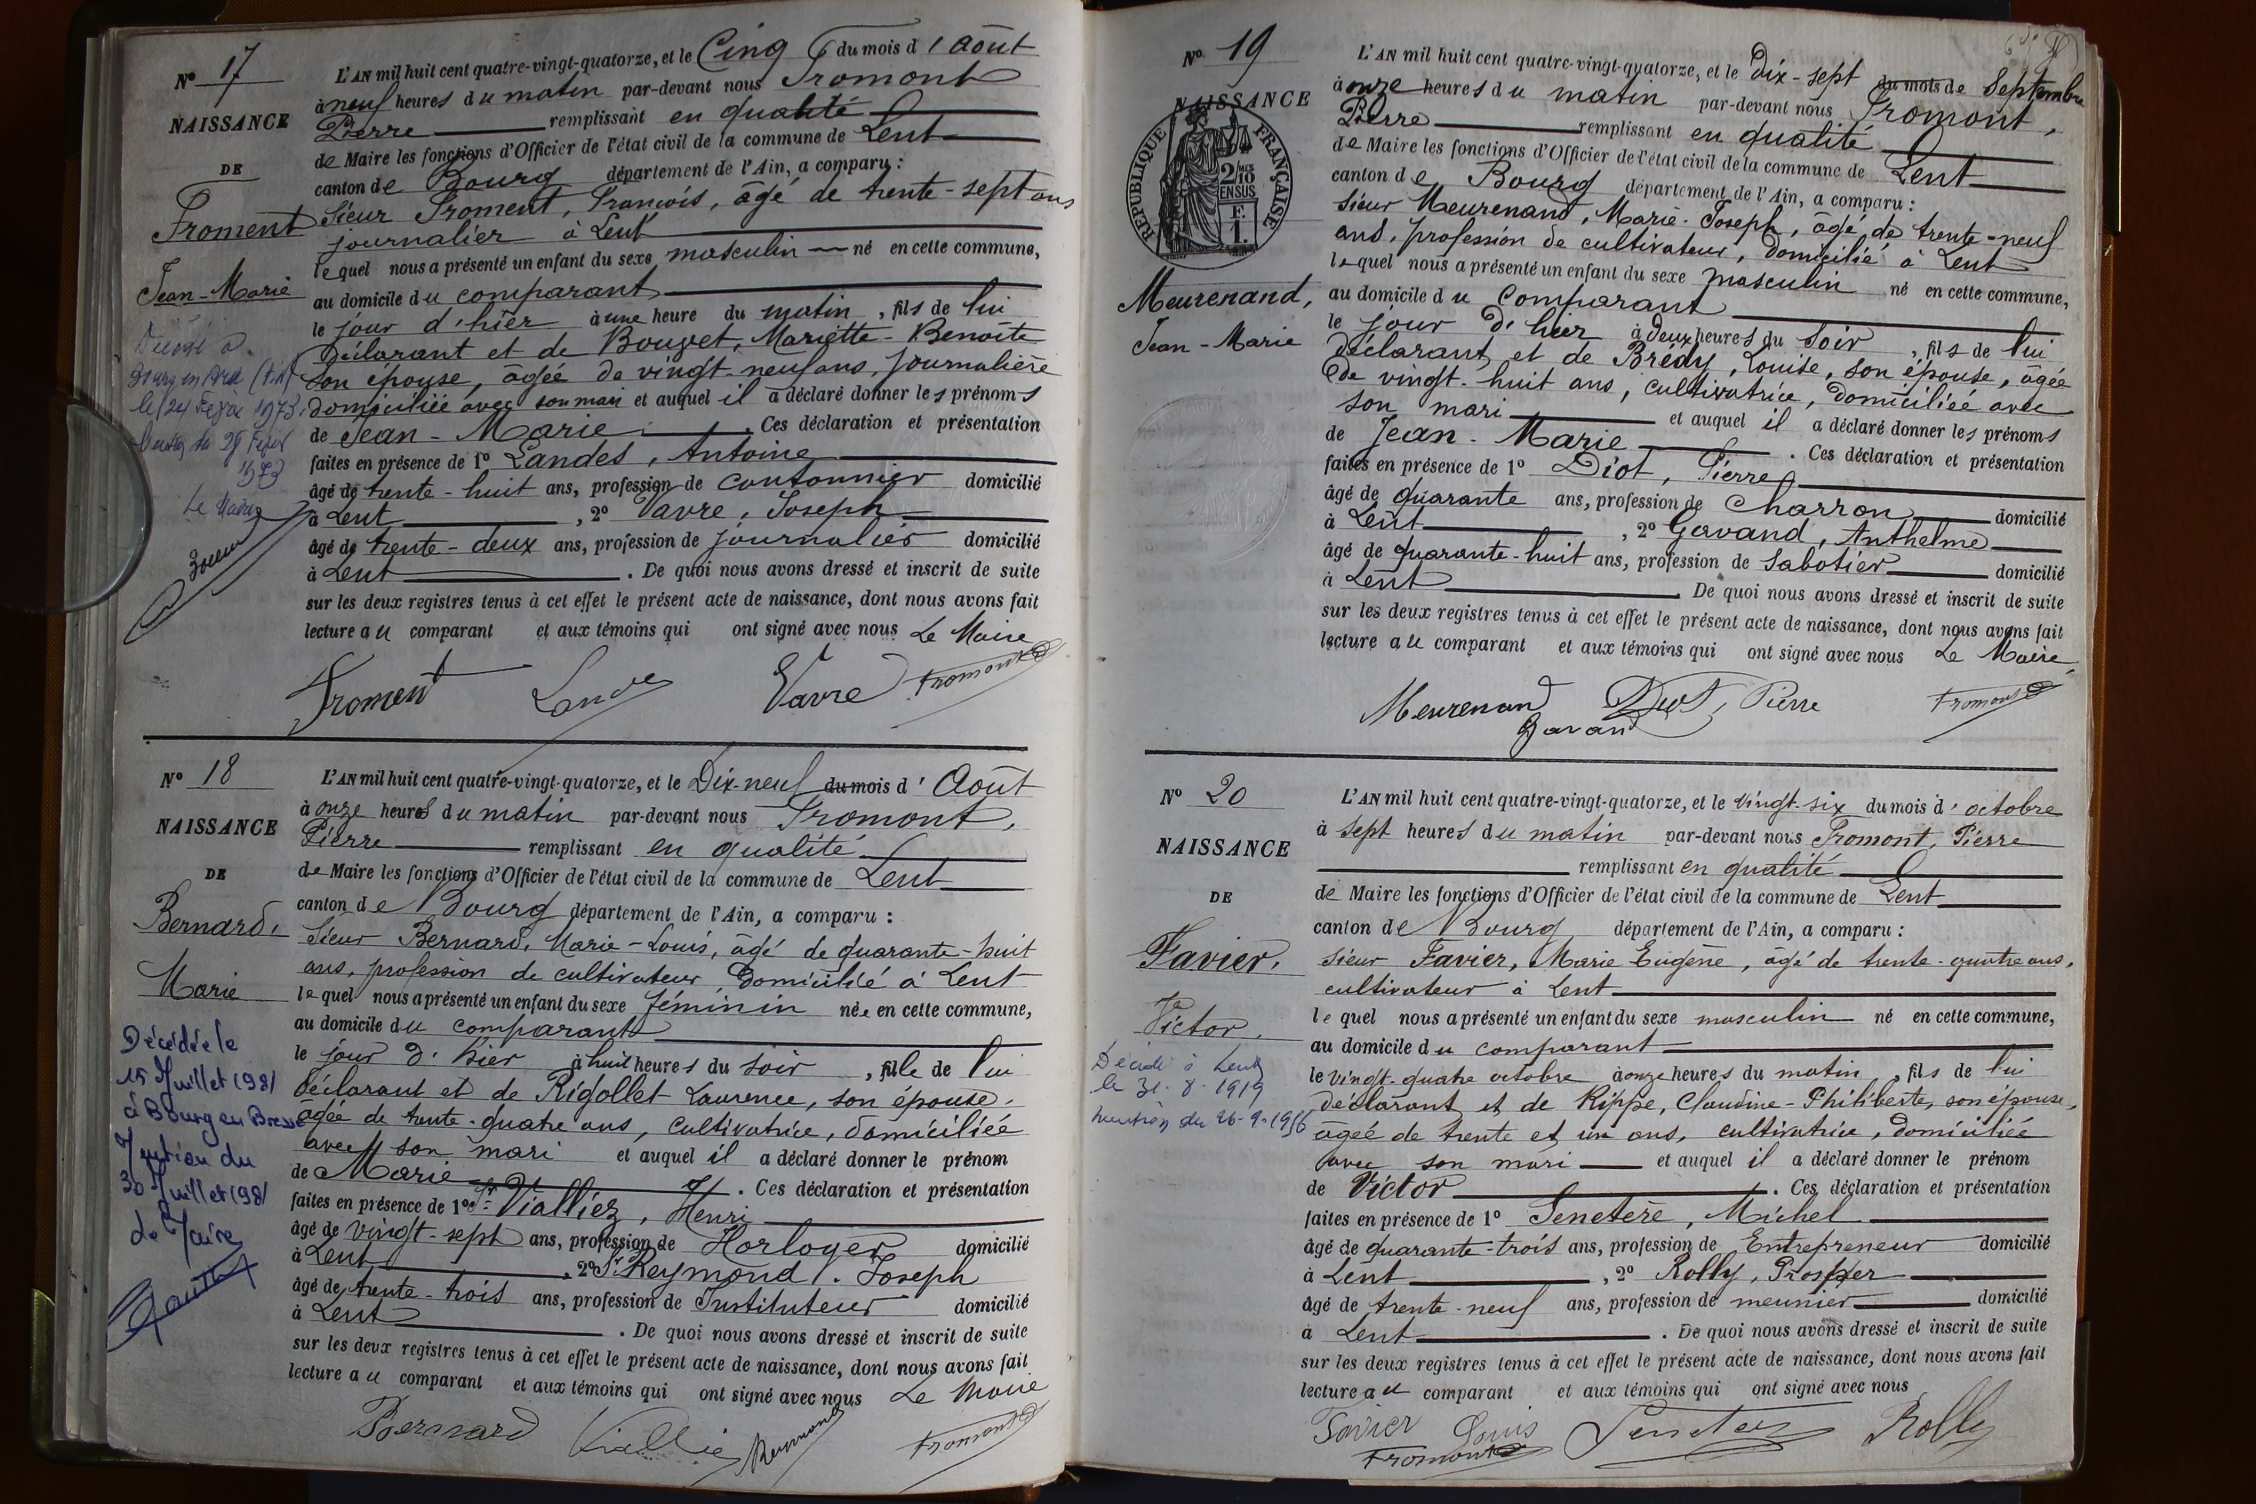 Nº 17
NAISSANCE
DE
Froment
Jean-Marie
le 24
1973
Le Maire
L'AN mil huit cent quatre-vingt-quatorze, et le Cinq du mois d'Août
à neuf heures du matin par-devant nous Fromont
Pierre remplissant en qualité
de Maire les fonctions d'Officier de l'état civil de la commune de Lent
canton de Bourg département de l'Ain, a comparu :
Sieur Froment, François, âgé de trente-sept ans
journalier à Lent
lequel nous a présenté un enfant du sexe masculin né en cette commune,
au domicile du comparant
le jour d'hier à une heure du matin, fils de lui
déclarant et de Bouvet, Mariette-Benoîte
son épouse, âgée de vingt-neuf ans, journalière
domiciliée avec son mari et auquel il a déclaré donner les prénoms
de Jean-Marie. Ces déclaration et présentation
faites en présence de 1º Landes, Antoine
âgé de trente-huit ans, profession de cantonnier domicilié
à Lent, 2º Vavre, Joseph
âgé de trente-deux ans, profession de journalier domicilié
à Lent. De quoi nous avons dressé et inscrit de suite
sur les deux registres tenus à cet effet le présent acte de naissance, dont nous avons fait
lecture au comparant et aux témoins qui ont signé avec nous Le Maire
Froment Lande Vavre Fromont
Nº 18
NAISSANCE
DE
Bernard,
Marie
Décédée le
15 Juillet 1981
à Bourg en Bresse
Mention du
30 Juillet 1981
Le Maire
L'AN mil huit cent quatre-vingt-quatorze, et le Dix-neuf du mois d'Août
à onze heures du matin par-devant nous Fromont,
Pierre remplissant en qualité
de Maire les fonctions d'Officier de l'état civil de la commune de Lent
canton de Bourg département de l'Ain, a comparu :
Sieur Bernard, Marie-Louis, âgé de quarante-huit
ans, profession de cultivateur, domicilié à Lent
lequel nous a présenté un enfant du sexe féminin née en cette commune,
au domicile du comparant
le jour d'hier à huit heures du soir, fille de lui
déclarant et de Rigollet Laurence, son épouse,
âgée de trente-quatre ans, cultivatrice, domiciliée
avec son mari et auquel il a déclaré donner le prénom
de Marie. Ces déclaration et présentation
faites en présence de 1º Sr Vialliez, Henri
âgé de vingt-sept ans, profession de Horloger domicilié
à Lent, 2º Sr Reymond, Joseph
âgé de trente-trois ans, profession de Instituteur domicilié
à Lent. De quoi nous avons dressé et inscrit de suite
sur les deux registres tenus à cet effet le présent acte de naissance, dont nous avons fait
lecture au comparant et aux témoins qui ont signé avec nous Le Maire
Bernard Reymond Fromont
Nº 19
NAISSANCE
REPUBLIQUE FRANÇAISE
2/10 EN SUS
F. 1.
Meurenand,
Jean-Marie
L'AN mil huit cent quatre-vingt-quatorze, et le dix-sept du mois de Septembre
à onze heures du matin par-devant nous Fromont,
Pierre remplissant en qualité
de Maire les fonctions d'Officier de l'état civil de la commune de Lent
canton de Bourg département de l'Ain, a comparu :
Sieur Meurenand, Marie-Joseph, âgé de trente-neuf
ans, profession de cultivateur, domicilié à Lent
lequel nous a présenté un enfant du sexe masculin né en cette commune,
au domicile du comparant
le jour d'hier à deux heures du soir, fils de lui
déclarant et de Brédy, Louise, son épouse, âgée
de vingt-huit ans, cultivatrice, domiciliée avec
son mari et auquel il a déclaré donner les prénoms
de Jean-Marie. Ces déclaration et présentation
faites en présence de 1º Diot, Pierre
âgé de quarante ans, profession de Charron domicilié
à Lent, 2º Gavand, Anthelme
âgé de quarante-huit ans, profession de Sabotier domicilié
à Lent. De quoi nous avons dressé et inscrit de suite
sur les deux registres tenus à cet effet le présent acte de naissance, dont nous avons fait
lecture au comparant et aux témoins qui ont signé avec nous Le Maire
Meurenand Diot, Pierre Fromont
Gavand
Nº 20
NAISSANCE
DE
Favier,
Victor,
Décédé à Lent
le 31-8-1919
mention du 26-9-1956
L'AN mil huit cent quatre-vingt-quatorze, et le vingt-six du mois d'octobre
à sept heures du matin par-devant nous Fromont, Pierre
remplissant en qualité
de Maire les fonctions d'Officier de l'état civil de la commune de Lent
canton de Bourg département de l'Ain, a comparu :
Sieur Favier, Marie Eugène, âgé de trente-quatre ans,
cultivateur à Lent
lequel nous a présenté un enfant du sexe masculin né en cette commune,
au domicile du comparant
le vingt-quatre octobre à onze heures du matin, fils de lui
déclarant et de Rippe, Claudine-Philiberte, son épouse,
âgée de trente et un ans, cultivatrice, domiciliée
avec son mari et auquel il a déclaré donner le prénom
de Victor. Ces déclaration et présentation
faites en présence de 1º Senetère, Michel
âgé de quarante-trois ans, profession de Entrepreneur domicilié
à Lent, 2º Rolly, Prosper
âgé de trente-neuf ans, profession de meunier domicilié
à Lent. De quoi nous avons dressé et inscrit de suite
sur les deux registres tenus à cet effet le présent acte de naissance, dont nous avons fait
lecture au comparant et aux témoins qui ont signé avec nous
Favier Louis Rolly
Fromont